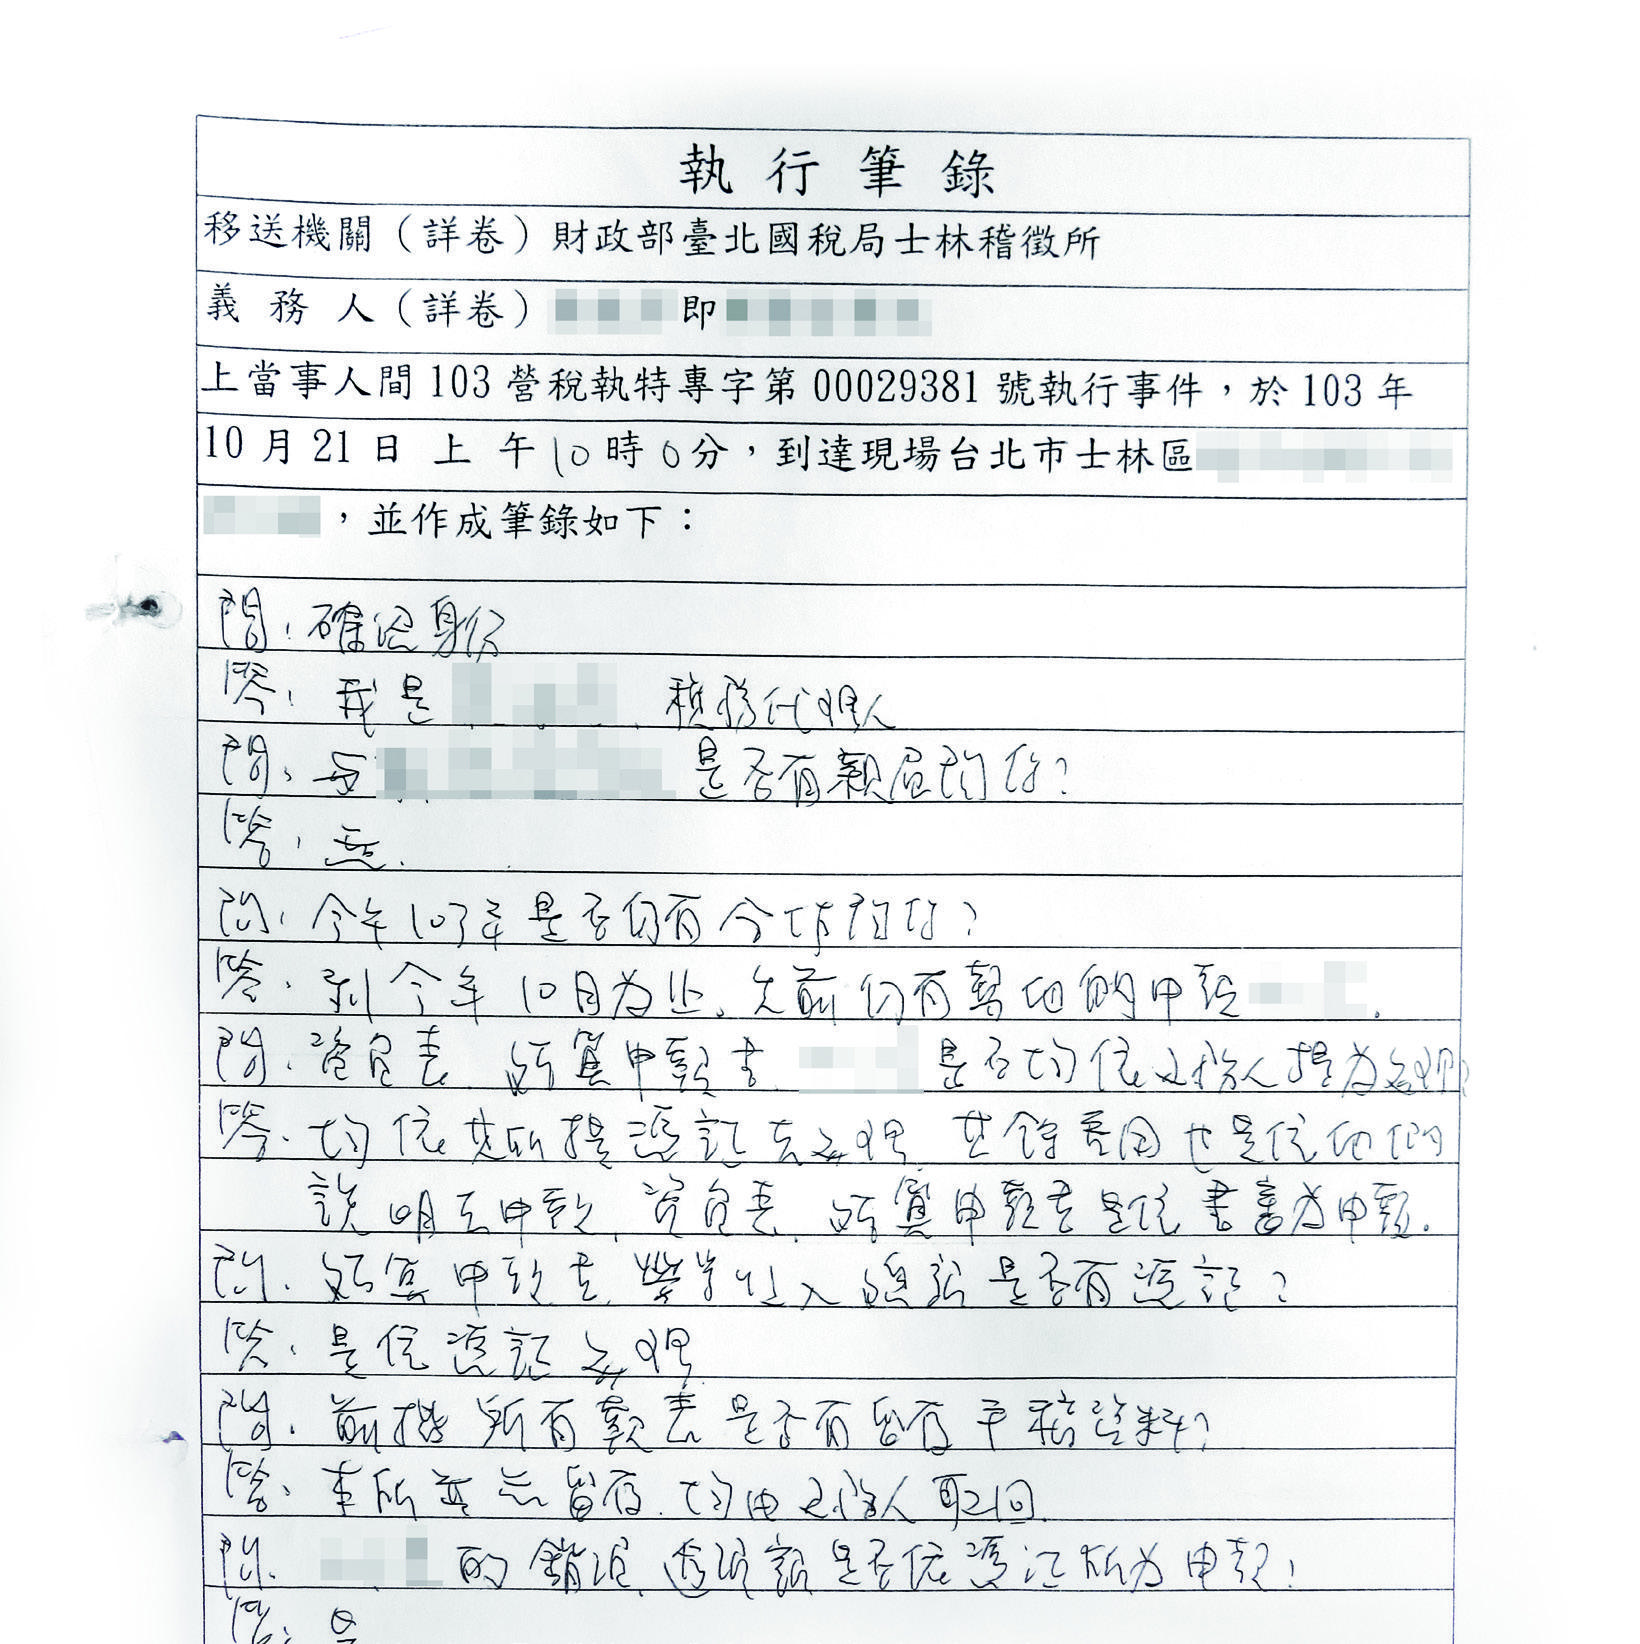 執行筆錄
移送機關（詳卷）財政部臺北國稅局士林稽徵所
義務人（詳卷）即
上當事人間103營稅執特專字第00029381號執行事件，於103年
10月21日 上午10時0分，到達現場台北市士林區
，並作成筆錄如下：
問：確認身份
答：我是 稅務代理人
問：與 是否有親屬關係？
答：無.
問：今年103年是否仍有合作關係？
答：到今年10月為止。先前仍有幫他們申報 .
問：資負表、結算申報書、 是否均依義務人提為辦理？
答：均依其所提憑證去辦理 其餘費用也是依他們
說明去申報、資負表、結算申報書是依書審為申報.
問：結算申報書、營業收入總額是否有憑証？
答：是依憑証辦理
問：前揭所有報表是否有留存 資料？
答：本所並無留存.均由義務人取回.
問： 的銷項、進項額是否依憑証所為申報？
答：是